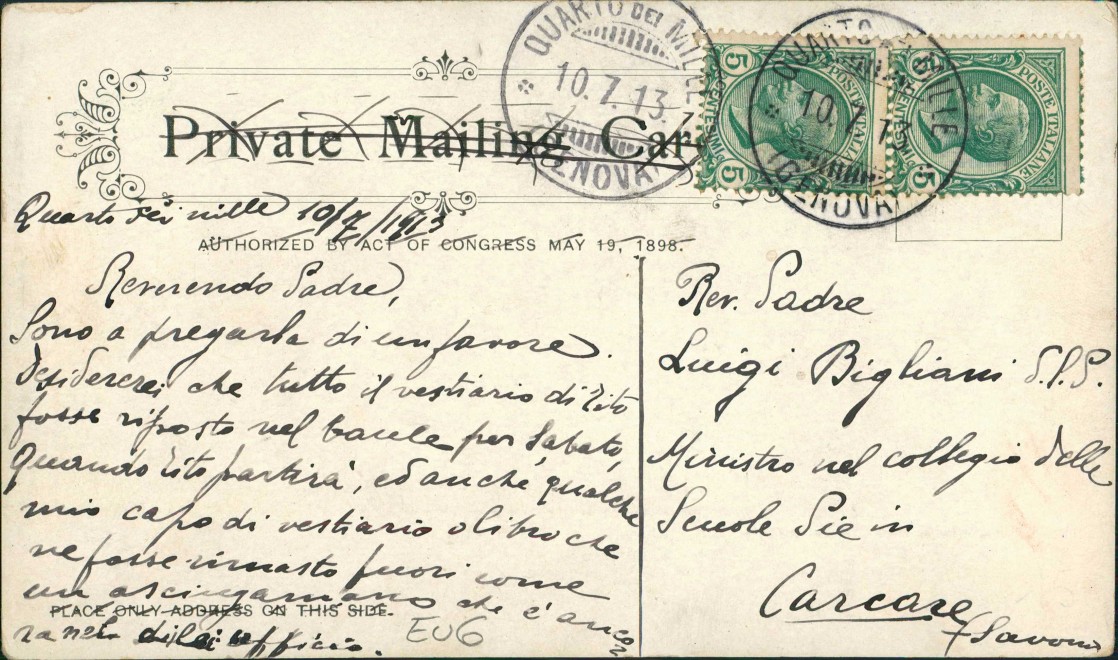 QUARTO DEI MILLE
10.7.13.
GENOVA
QUARTO DEI MILLE
10.7.13
GENOVA
POSTE ITALIANE
CENTESIMI
5
5
POSTE ITALIANE
CENTESIMI
5
Private Mailing Car
Quarto dei mille 10/7/1913
AUTHORIZED BY ACT OF CONGRESS MAY 19, 1898.
Reverendo Padre,
Sono a pregarla di un favore.
Desidererei che tutto il vestiario di Tito
fosse riposto nel baule per Sabato,
quando Tito partirà, ed anche qualche
mio capo di vestiario o libro che
ne fosse rimasto fuori come
un asciugamano che c'è anco
PLACE ONLY ADDRESS ON THIS SIDE.
ra nel di lei ufficio.
EUG
Rev. Padre
Luigi Bigliani S.P.S.
Ministro nel collegio delle
Scuole Pie in
Carcare
(Savona